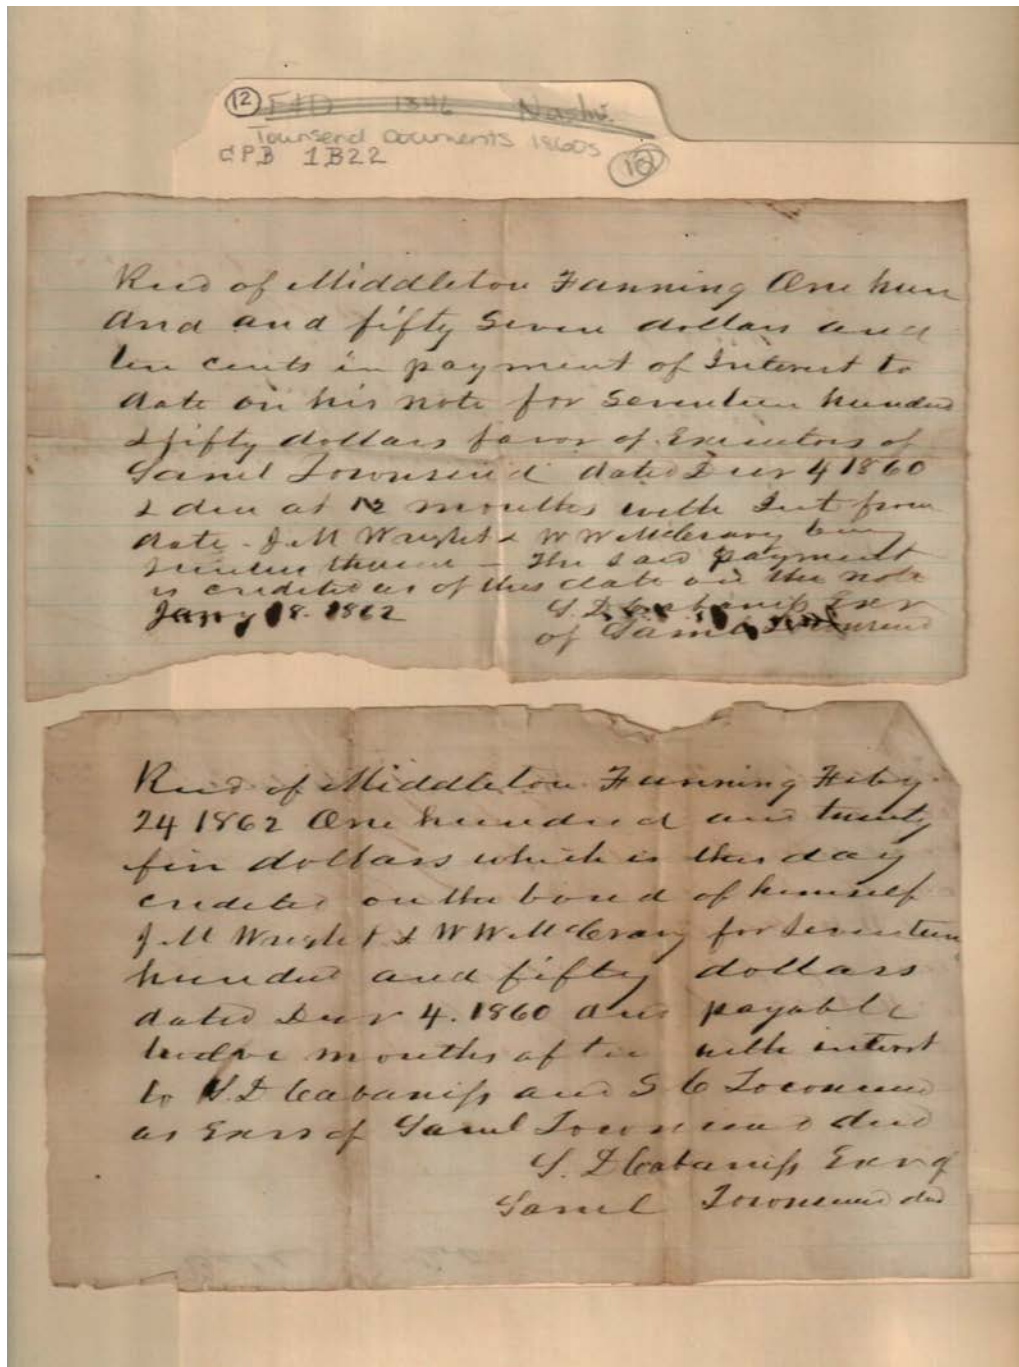 12 F&D 1846 Nashv.
Townsend Documents 1860s
CPB 1B22 12
Recd of Middleton Fanning One hun
drd and fifty Seven dollars and
ten cents in payment of Interest to
date on his note for Seventeen hundred
& fifty dollars favor of Executors of
Saml Townsend dated Decr 4 1860
& due at 12 months with Int from
date - J. M Wright & W W McCrary being
thereon - The said payment
is credited as of this date on the note
Jany 18. 1862 S. D Cabaniss Exer
of Saml Townsend
Recd of Middleton Fanning Feby
24 1862 One hundred and twenty
five dollars which is this day
credited on the bond of himself
J. M Wright & W W McCrary for Seventeen
hundred and fifty dollars
dated Decr 4. 1860 and payable
twelve months after with interest
to S. D Cabaniss and S C Townsend
as Exrs of Saml Townsend decd
S. D Cabaniss Exr of
Saml Townsend decd